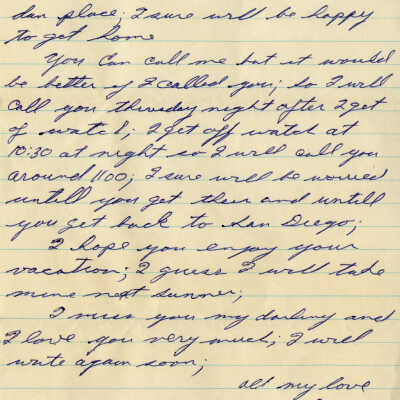 dan place; I sure will be happy
to get home
You can call me but it would
be better if I called you; so I will
call you thursday night after I get
of watch; I get off watch at
10:30 at night so I will call you
around 1100; I sure will be worried
untill you get there and untill
you get back to San Diego;
I hope you enjoy your
vacation; I guess I will take
mine next summer;
I miss you my darling and
I love you very much; I will
write again soon;
all my love